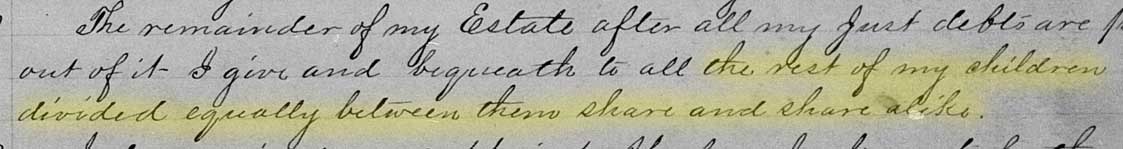 The remainder of my Estate after all my Just debts are
out of it I give and bequeath to all the rest of my children
divided equally between them share and share alike.